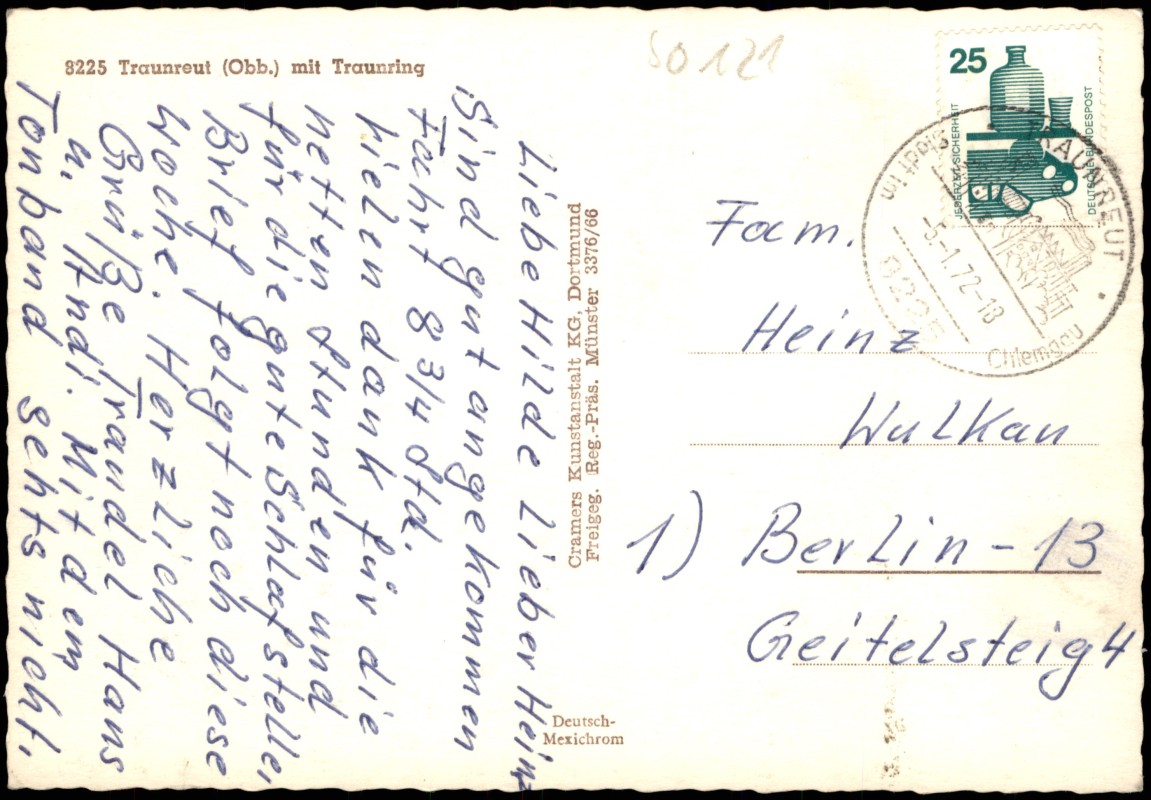 8225 Traunreut (Obb.) mit Traunring
Liebe Hilde Lieber Heinz
Sind gut angekommen
Fahrt 8 3/4 Std.
vielen dank für die
netten Stunden und
für die gute Schlafstelle,
Brief folgt noch diese
Woche. Herzliche
Grüße Traudel Hans
u. Andi. Mit dem
Tonband gehts nicht.
Cramers Kunstanstalt KG, Dortmund
Freigeg. Reg.-Präs. Münster 3376/66
Deutsch-
Mexichrom
50121
25
JEDERZEIT SICHERHEIT
DEUTSCHE BUNDESPOST
TRAUNREUT
-5.-1.72-13
8225
Chiemgau
Fam.
Heinz
Wulkan
1) Berlin-13
Geitelsteig 4